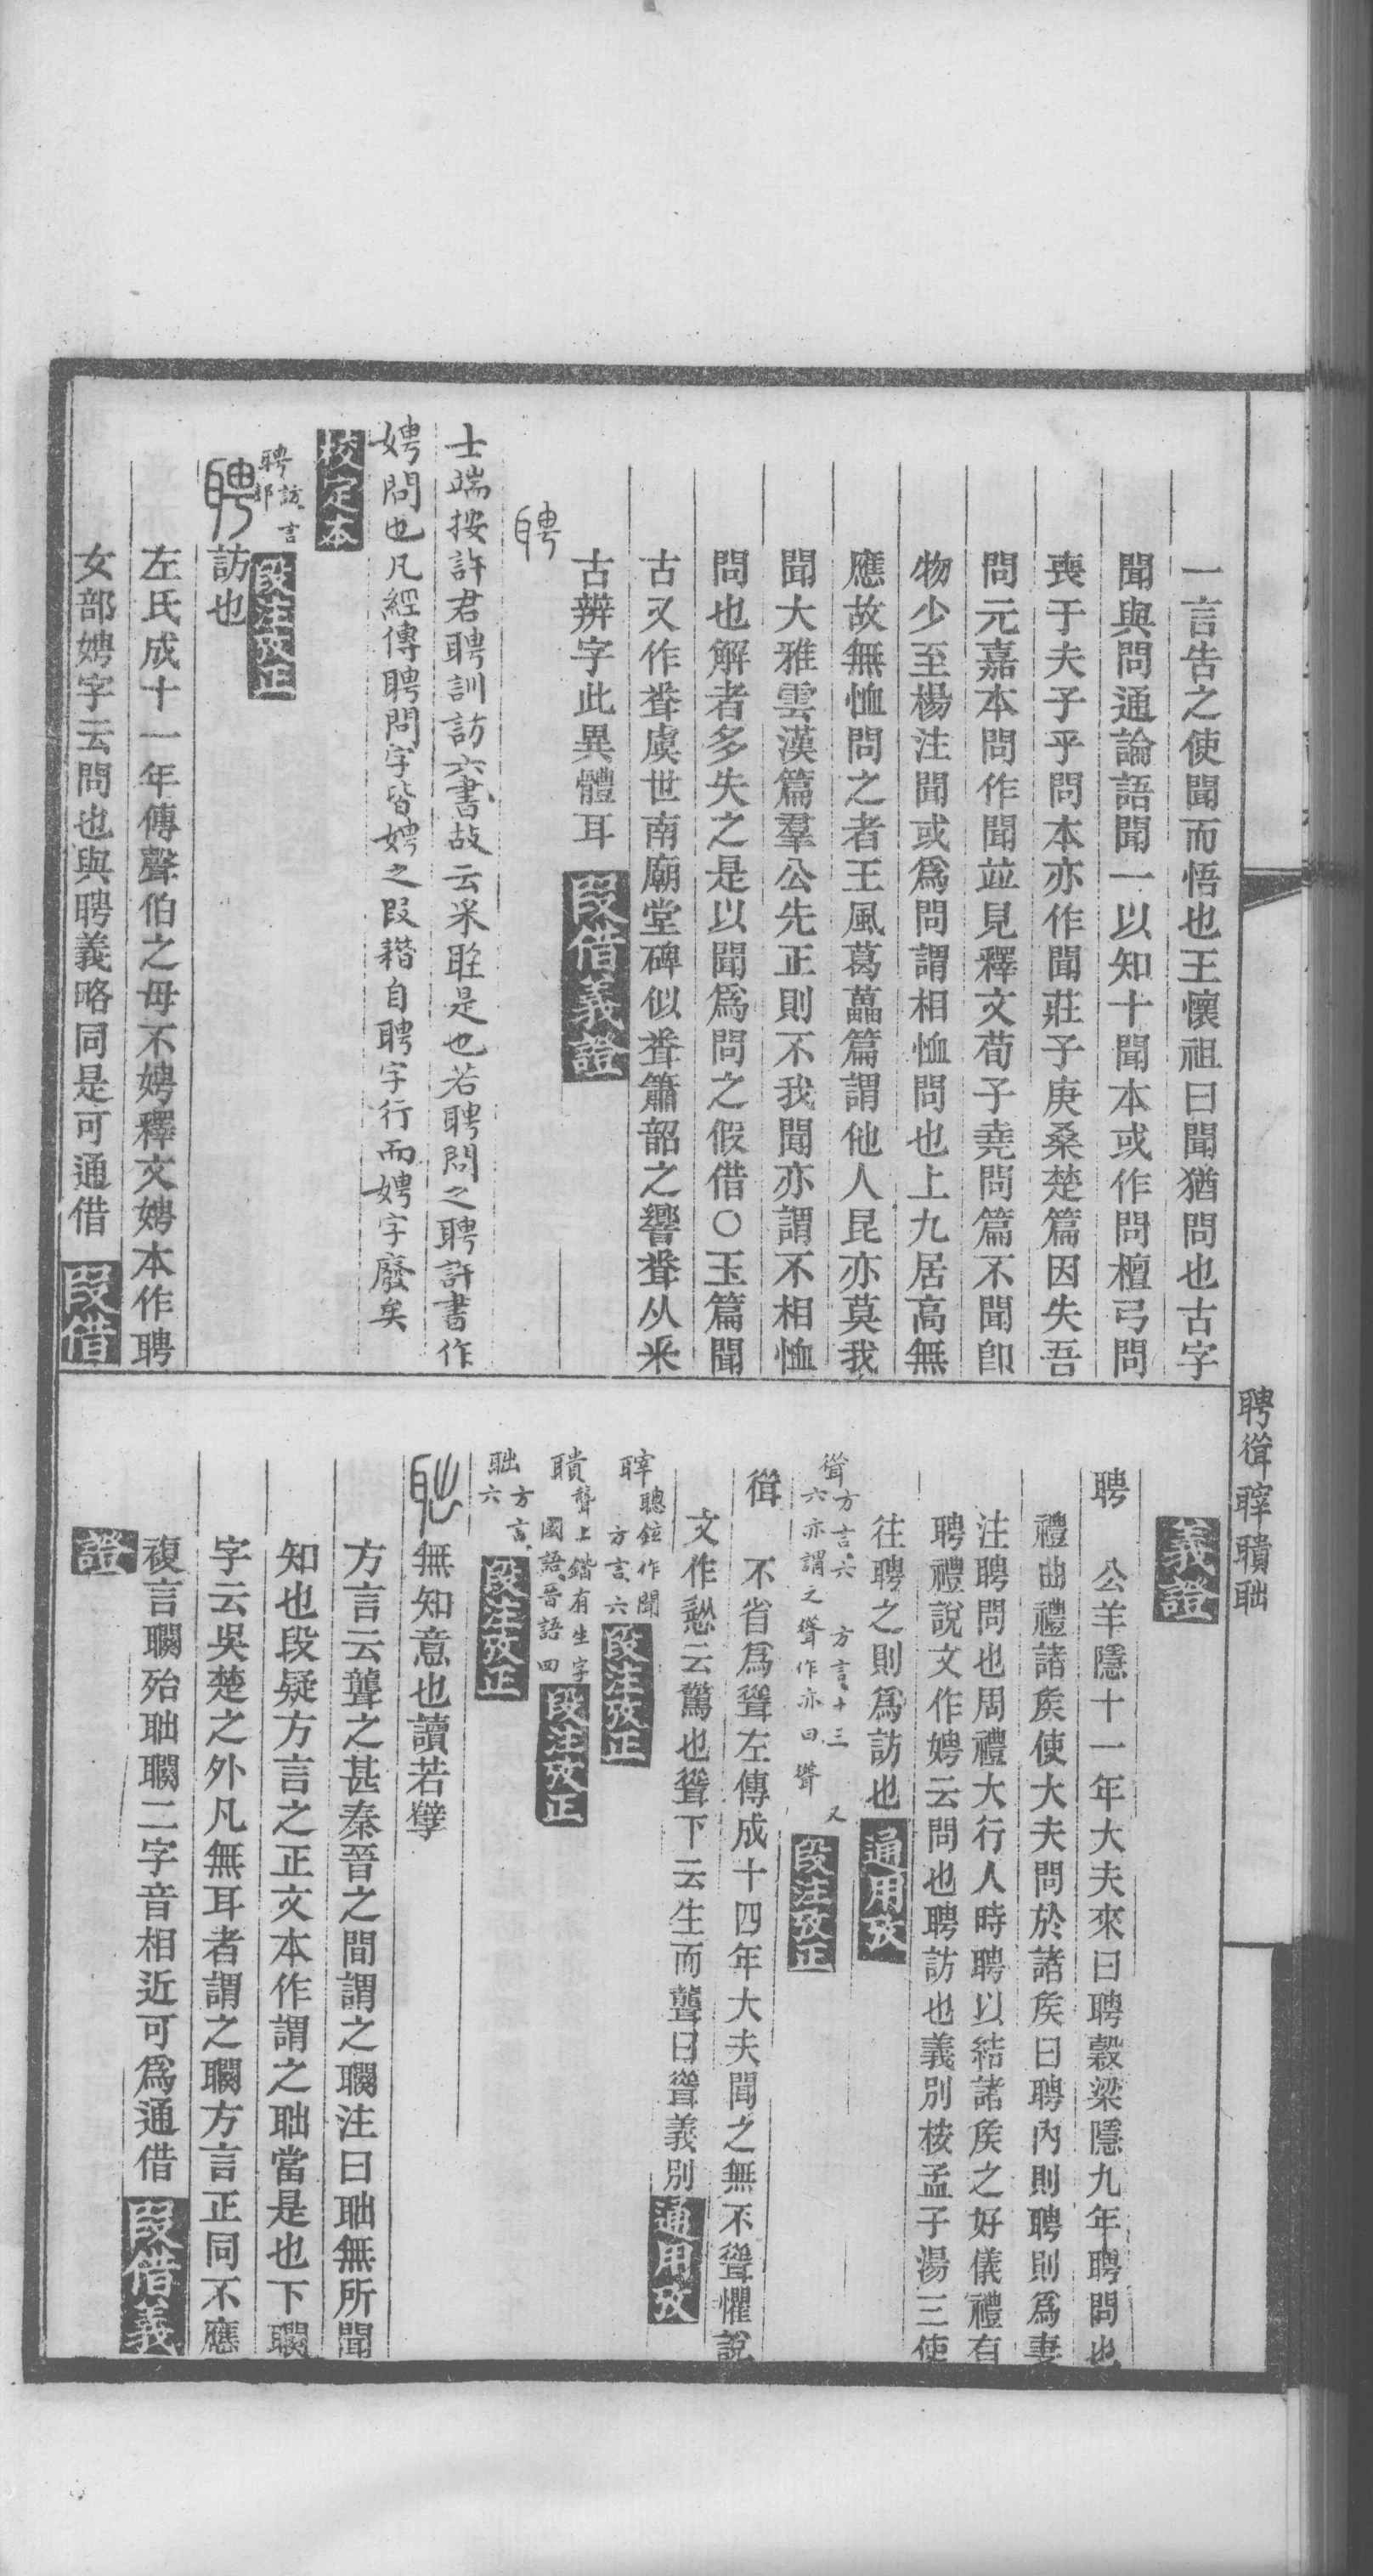 一言告之使聞而悟也王懷祖曰聞猶問也古字
聞與問通論語聞一以知十聞本或作問檀弓問
喪于夫子乎問本亦作聞莊子庚桑楚篇因失吾
問元嘉本問作聞並見釋文荀子堯問篇不聞卽
物少至楊注聞或爲問謂相恤問也上九居高無
應故無恤問之者王風葛藟篇謂他人昆亦莫我
聞大雅雲漢篇羣公先正則不我聞亦謂不相恤
問也解者多失之是以聞爲問之假借○玉篇聞
古又作䎽虞世南廟堂碑似䎽簫韶之響䎽从釆
古辨字此異體耳 叚借義證
聘
士端按許君聘訓訪六書故云釆聇是也若聘問之聘許書作
娉問也凡經傳聘問字皆娉之叚藉自聘字行而娉字廢矣
校定本
聘訪言部 段注攷正
聘 訪也
左氏成十一年傳聲伯之母不娉釋文娉本作聘
女部娉字云問也與聘義略同是可通借 叚借
義證
聘 公羊隱十一年大夫來曰聘穀梁隱九年聘問也
禮曲禮諸矦使大夫問於諸矦曰聘內則聘則爲妻
注聘問也周禮大行人時聘以結諸矦之好儀禮有
聘禮說文作娉云問也聘訪也義別桉孟子湯三使
往聘之則爲訪也 通用攷
聳方言六 方言十三 又六亦謂之聳作亦曰聳 段注攷正
𦗜 不省爲聳左傳成十四年大夫聞之無不聳懼說
文作愯云驚也聳下云生而聾曰聳義別 通用攷
聹聰鉉作聞方言六 段注攷正
聵聾上鍇有生字國語晉語四 段注攷正
聉方言六 段注攷正
聉 無知意也讀若孼
方言云聾之甚秦晉之間謂之䎳注曰聉無所聞
知也段疑方言之正文本作謂之聉當是也下䎳
字云吳楚之外凡無耳者謂之䎳方言正同不應
複言䎳殆聉䎳二字音相近可爲通借 叚借義
證
聘𦗜聹聵聉